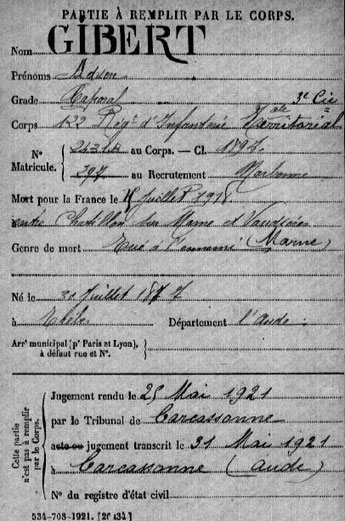 PARTIE À REMPLIR PAR LE CORPS.
Nom GIBERT
Prénoms
Grade Caporal 3e Cie
Corps 132 Régt d'Infanterie Territorial
N° Matricule. au Corps. — Cl. 1894
397 au Recrutement Narbonne
Mort pour la France le 15 juillet 1918
entre Chatillon sur Marne et
Genre de mort Tué à l'ennemi (Marne)
Né le 30 Juillet 1877
à Trèbes Département l'Aude
Arrt municipal (pr Paris et Lyon),
à défaut rue et N°.
Cette partie
n'est pas à remplir
par le Corps.
Jugement rendu le 25 Mai 1921
par le Tribunal de Carcassonne
acte ou jugement transcrit le 31 Mai 1921
à Carcassonne (Aude)
N° du registre d'état civil
534-708-1921. [26434]